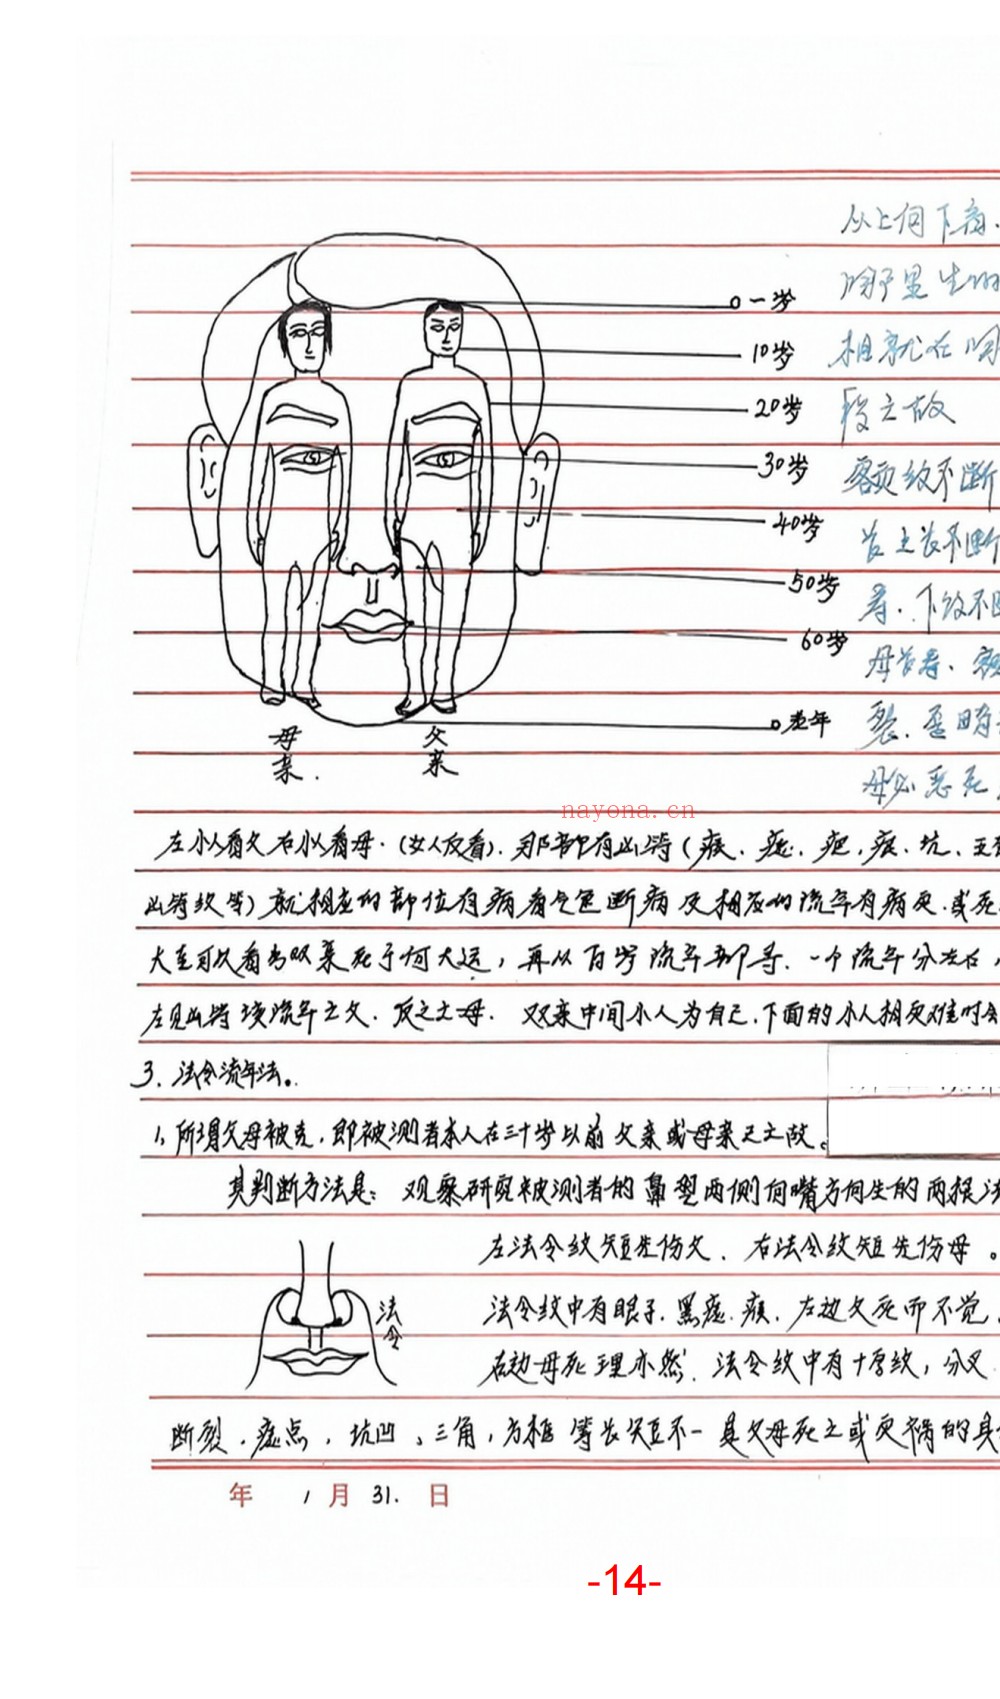 从上向下看.
哪里生的
相就在哪
段之故
额纹不断
首之首不断
寿.下纹不
母首寿、额
裂.歪
母必恶死
0一岁
10岁
20岁
30岁
40岁
50岁
60岁
0老年
母亲.
父亲
nayona.cn
左小人看父右小人看母.(女人反看).那部有出特(痕、痣、疤、痕、坑、
出特纹等)就相应的部位有病看气色断病及相应的流年有病灾.或死
大至可以看出双亲死于何大运,再从百岁流年部寻.一个流年分左右,
左见出特该流年之父.反之士母. 双亲中间小人为自己.下面的小人相
3.法令流年法。
1、所谓父母被克,即被测者本人在三十岁以前父亲或母亲已亡故。
其判断方法是:观察研究被测者的鼻型两侧向嘴方向生的两根法
左法令纹短先伤父.右法令纹短先伤母。
法令纹中有眼子.黑痣.痕.左边父死而不觉.
右边母死理亦然.法令纹中有十字纹,分叉.
法令
断裂.痣点,坑凹、三角,方框等长短不一是父母死亡或灾祸的具
年 1月31.日
-14-